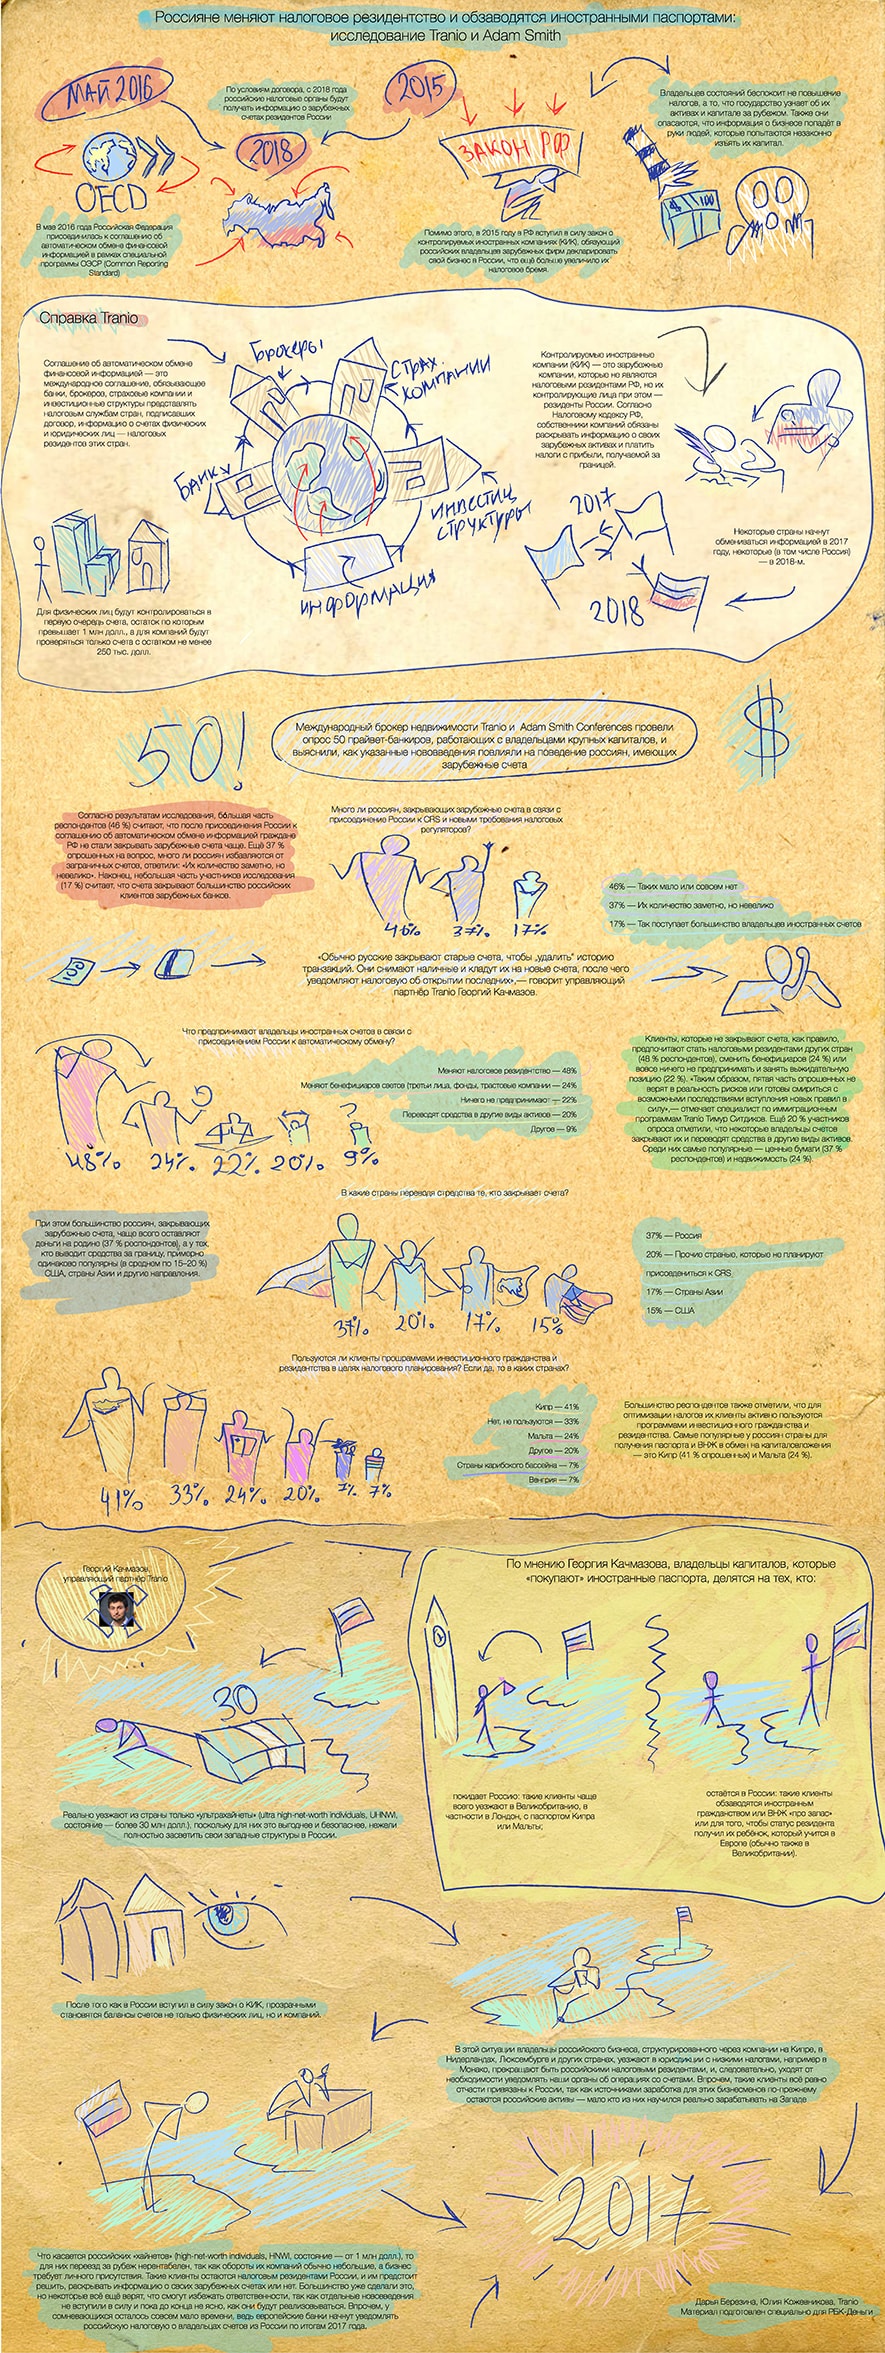 Россияне меняют налоговое резидентство и обзаводятся иностранными паспортами:
исследование Tranio и Adam Smith
МАЙ 2016
OECD
В мае 2016 года Российская Федерация
присоединилась к соглашению об
автоматическом обмене финансовой
информацией в рамках специальной
программы ОЭСР (Common Reporting
Standard)
По условиям договора, с 2018 года
российские налоговые органы будут
получать информацию о зарубежных
счетах резидентов России
2018
2015
ЗАКОН РФ
Помимо этого, в 2015 году в РФ вступил в силу закон о
контролируемых иностранных компаниях (КИК), обязующий
российских владельцев зарубежных фирм декларировать
свой бизнес в России, что ещё больше увеличило их
налоговое бремя.
Владельцев состояний беспокоит не повышение
налогов, а то, что государство узнает об их
активах и капитале за рубежом. Также они
опасаются, что информация о бизнесе попадёт в
руки людей, которые попытаются незаконно
изъять их капитал.
100
Справка Tranio
Соглашение об автоматическом обмене
финансовой информацией — это
международное соглашение, обязывающее
банки, брокеров, страховые компании и
инвестиционные структуры представлять
налоговым службам стран, подписавших
договор, информацию о счетах физических
и юридических лиц — налоговых
резидентов этих стран.
Брокеры
СТРАХ.
КОМПАНИИ
Банки
ИНВЕСТИЦ
СТРУКТУРЫ
ИНФОРМАЦИЯ
Для физических лиц будут контролироваться в
первую очередь счета, остаток по которым
превышает 1 млн долл., а для компаний будут
проверяться только счета с остатком не менее
250 тыс. долл.
Контролируемые иностранные
компании (КИК) — это зарубежные
компании, которые не являются
налоговыми резидентами РФ, но их
контролирующие лица при этом —
резиденты России. Согласно
Налоговому кодексу РФ,
собственники компаний обязаны
раскрывать информацию о своих
зарубежных активах и платить
налоги с прибыли, получаемой за
границей.
2017
2018
Некоторые страны начнут
обмениваться информацией в 2017
году, некоторые (в том числе Россия)
— в 2018-м.
50!
Международный брокер недвижимости Tranio и Adam Smith Conferences провели
опрос 50 прайвет-банкиров, работающих с владельцами крупных капиталов, и
выяснили, как указанные нововведения повлияли на поведение россиян, имеющих
зарубежные счета
$
Согласно результатам исследования, бóльшая часть
респондентов (46 %) считают, что после присоединения России к
соглашению об автоматическом обмене информацией граждане
РФ не стали закрывать зарубежные счета чаще. Ещё 37 %
опрошенных на вопрос, много ли россиян избавляются от
заграничных счетов, ответили: «Их количество заметно, но
невелико». Наконец, небольшая часть участников исследования
(17 %) считает, что счета закрывают большинство российских
клиентов зарубежных банков.
Много ли россиян, закрывающих зарубежные счета в связи с
присоединение России к CRS и новыми требования налоговых
регуляторов?
46% 37% 17%
46% — Таких мало или совсем нет
37% — Их количество заметно, но невелико
17% — Так поступает большинство владельцев иностранных счетов
100
«Обычно русские закрывают старые счета, чтобы „удалить“ историю
транзакций. Они снимают наличные и кладут их на новые счета, после чего
уведомляют налоговую об открытии последних»,— говорит управляющий
партнёр Tranio Георгий Качмазов.
Что предпринимают владельцы иностранных счетов в связи с
присоединением России к автоматическому обмену?
48% 24% 22% 20% 9%
Меняют налоговое резидентство — 48%
Меняют бенефициаров светов (третьи лица, фонды, трастовые компании — 24%
Ничего не предпринимают — 22%
Переводят средства в другие виды активов — 20%
Другое — 9%
Клиенты, которые не закрывают счета, как правило,
предпочитают стать налоговыми резидентами других стран
(48 % респондентов), сменить бенефициаров (24 %) или
вовсе ничего не предпринимать и занять выжидательную
позицию (22 %). «Таким образом, пятая часть опрошенных не
верят в реальность рисков или готовы смириться с
возможными последствиями вступления новых правил в
силу»,— отмечает специалист по иммиграционным
программам Tranio Тимур Ситдиков. Ещё 20 % участников
опроса отметили, что некоторые владельцы счетов
закрывают их и переводят средства в другие виды активов.
Среди них самые популярные — ценные бумаги (37 %
респондентов) и недвижимость (24 %).
В какие страны переводя стредства те, кто закрывает счета?
При этом большинство россиян, закрывающих
зарубежные счета, чаще всего оставляют
деньги на родине (37 % респондентов), а у тех,
кто выводит средства за границу, примерно
одинаково популярны (в среднем по 15–20 %)
США, страны Азии и другие направления.
37% 20% 17% 15%
37% — Россия
20% — Прочие страные, которые не планируют
присоедениться к CRS
17% — Страны Азии
15% — США
Пользуются ли клиенты прошраммами инвестиционного гражданства й
резидентства в целях налогового планирования? Если да, то в каких странах?
41% 33% 24% 20% 7% 7%
Кипр — 41%
Нет, не пользуются — 33%
Мальта — 24%
Другое — 20%
Страны карибского бассейна — 7%
Венгрия — 7%
Большинство респондентов также отметили, что для
оптимизации налогов их клиенты активно пользуются
программами инвестиционного гражданства и
резидентства. Самые популярные у россиян страны для
получения паспорта и ВНЖ в обмен на капиталовложения
— это Кипр (41 % опрошенных) и Мальта (24 %).
Георгий Качмазов,
управляющий партнёр Tranio
30
Реально уезжают из страны только «ультрахайнеты» (ultra high-net-worth individuals, UHNWI,
состояние — более 30 млн долл.), поскольку для них это выгоднее и безопаснее, нежели
полностью засветить свои западные структуры в России.
По мнению Георгия Качмазова, владельцы капиталов, которые
«покупают» иностранные паспорта, делятся на тех, кто:
покидает Россию: такие клиенты чаще
всего уезжают в Великобританию, в
частности в Лондон, с паспортом Кипра
или Мальты;
остаётся в России: такие клиенты
обзаводятся иностранным
гражданством или ВНЖ «про запас»
или для того, чтобы статус резидента
получил их ребёнок, который учится в
Европе (обычно также в
Великобритании).
После того как в России вступил в силу закон о КИК, прозрачными
становятся балансы счетов не только физических лиц, но и компаний.
В этой ситуации владельцы российского бизнеса, структурированного через компании на Кипре, в
Нидерландах, Люксембурге и других странах, уезжают в юрисдикции с низкими налогами, например в
Монако, прекращают быть российскими налоговыми резидентами, и, следовательно, уходят от
необходимости уведомлять наши органы об операциях со счетами. Впрочем, такие клиенты всё равно
отчасти привязаны к России, так как источниками заработка для этих бизнесменов по-прежнему
остаются российские активы — мало кто из них научился реально зарабатывать на Западе
2017
Что касается российских «хайнетов» (high-net-worth individuals, HNWI, состояние — от 1 млн долл.), то
для них переезд за рубеж нерентабелен, так как обороты их компаний обычно небольшие, а бизнес
требует личного присутствия. Такие клиенты остаются налоговыми резидентами России, и им предстоит
решить, раскрывать информацию о своих зарубежных счетах или нет. Большинство уже сделали это,
но некоторые всё ещё верят, что смогут избежать ответственности, так как отдельные нововведения
не вступили в силу и пока до конца не ясно, как они будут реализовываться. Впрочем, у
сомневающихся осталось совсем мало времени, ведь европейские банки начнут уведомлять
российскую налоговую о владельцах счетов из России по итогам 2017 года.
Дарья Березина, Юлия Кожевникова, Tranio
Материал подготовлен специально для РБК-Деньги